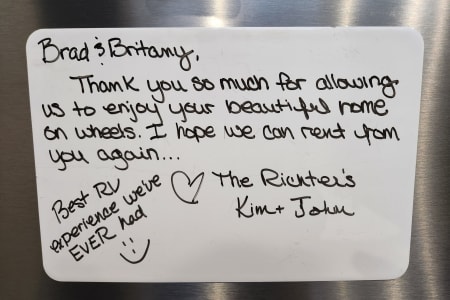 Brad & Britany,
Thank you so much for allowing
us to enjoy your beautiful home
on wheels. I hope we can rent from
you again...
♡ The Richter's
Kim + John
Best RV
experience we've
EVER had
:)